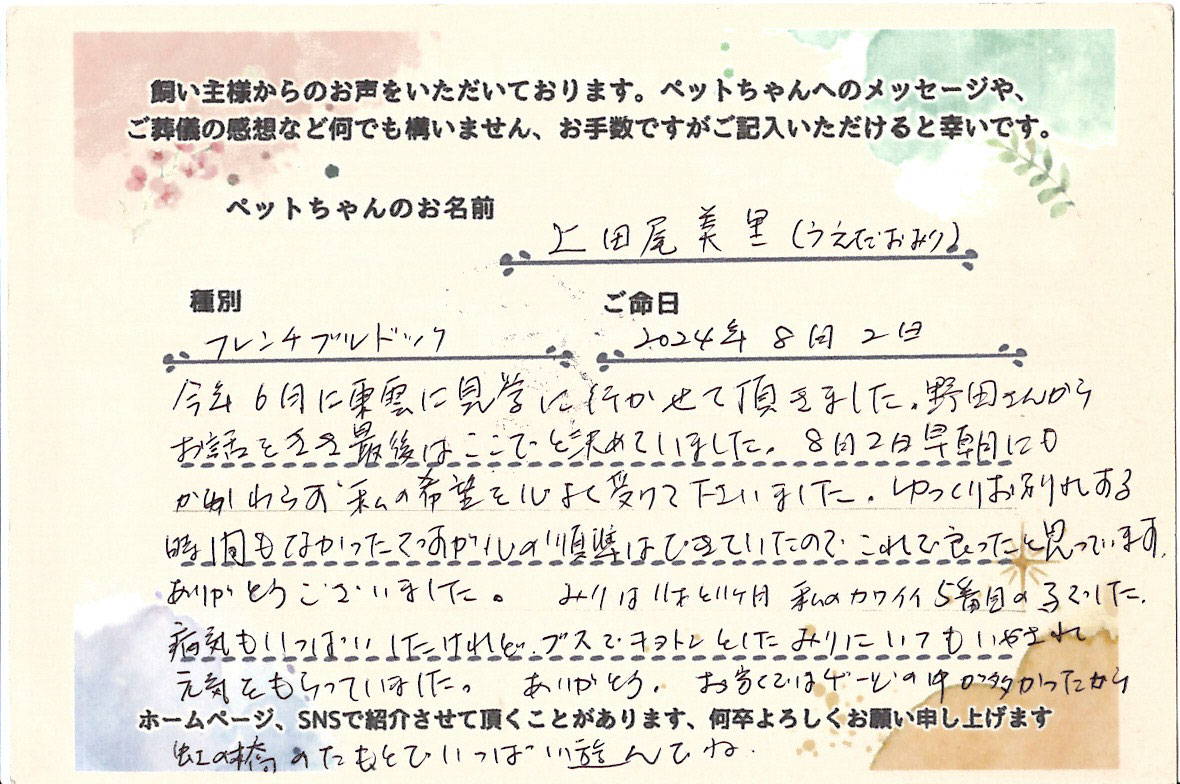 飼い主様からのお声をいただいております。ペットちゃんへのメッセージや、
ご葬儀の感想など何でも構いません、お手数ですがご記入いただけると幸いです。
ペットちゃんのお名前
上田尾美里(うえだおみり)
種別
ご命日
フレンチブルドック
2024年8月2日
今年6月に東雲に見学に行かせて頂きました。野田さんから
お話をきき最後はここでと決めていました。8月2日早朝にも
かかわらず私の希望を心よく受けて下さいました。ゆっくりお別れする
時間もなかったですが心の準備はできていたのでこれで良かったと思っています。
ありがとうございました。 みりは11才と11ヶ月 私のカワイイ5番目の子でした。
病気もいっぱいしたけれど、ブスでキョトンとしたみりにいつもいやされ
元気をもらっていました。 ありがとう。 お家ではゲージの中が多かったから
ホームページ、SNSで紹介させて頂くことがあります、何卒よろしくお願い申し上げます
虹の橋のたもとでいっぱい遊んでね.